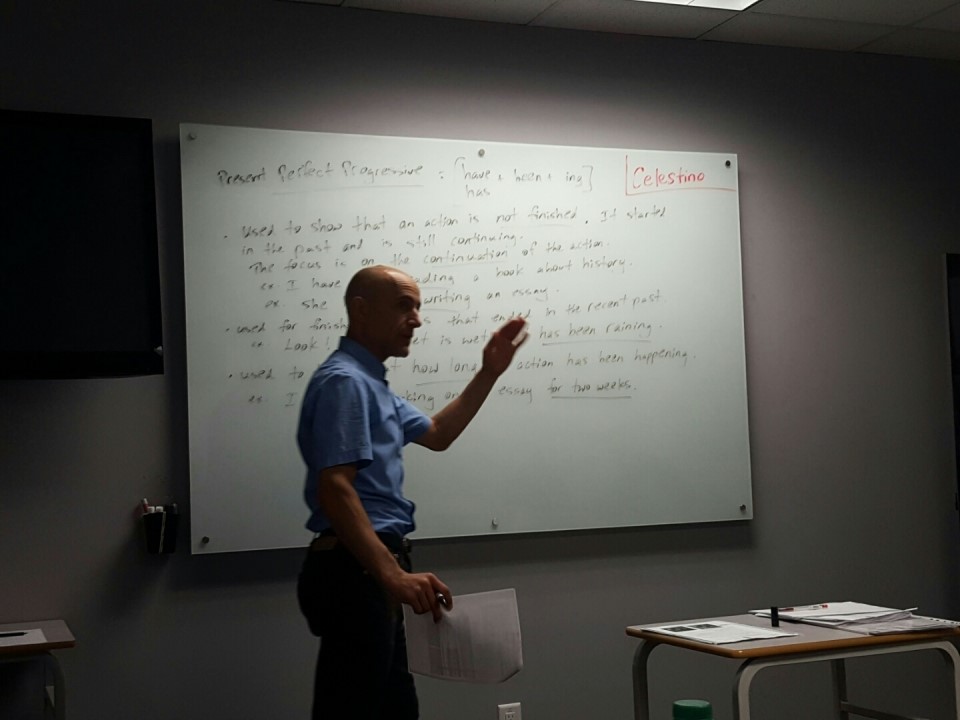 Present Perfect Progressive : [have + been + ing]
has
Celestino
• Used to show that an action is not finished. It started
in the past and is still continuing.
The focus is on the continuation of the action.
ex. I have reading a book about history.
ex. She writing an essay.
• used for that ended in the recent past.
ex Look! is wet has been raining.
• used to how long action has been happening.
ex. I essay for two weeks.